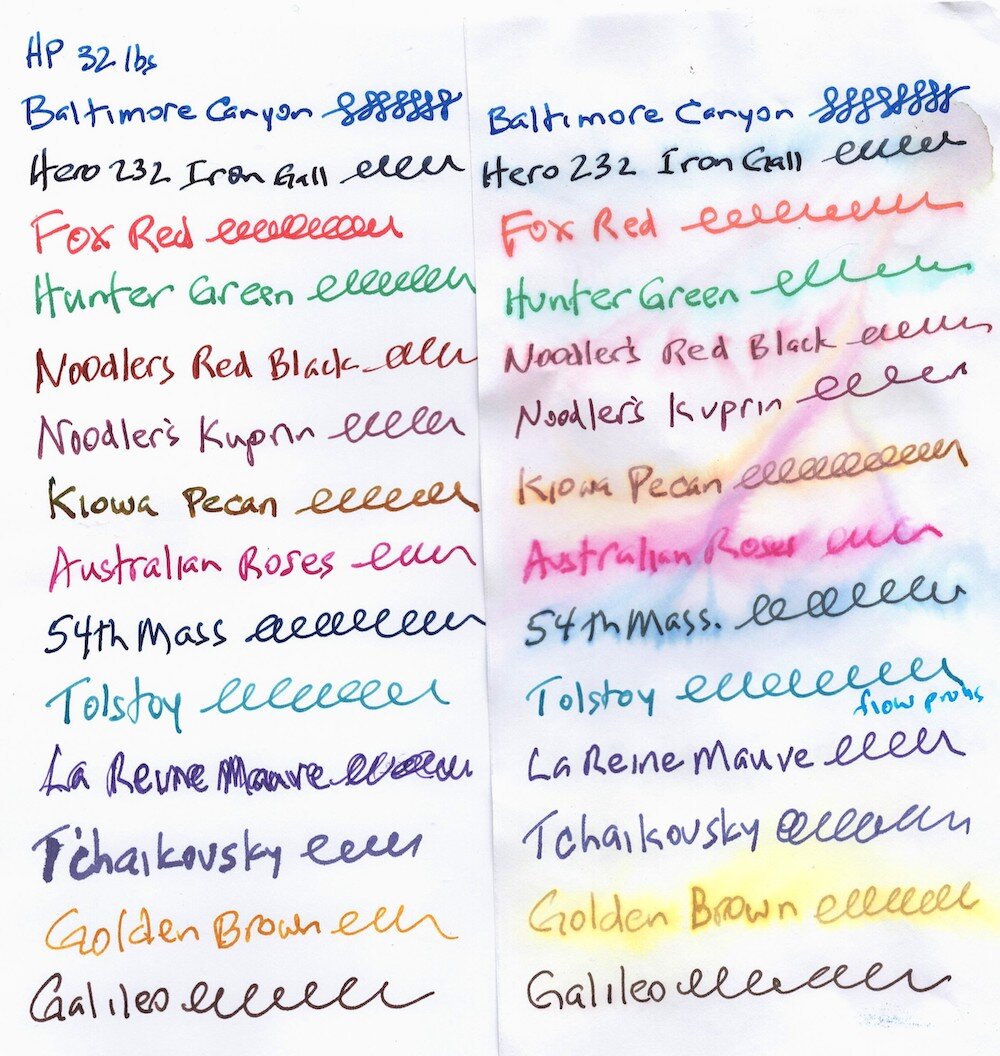 HP 32 lbs
Baltimore Canyon
Hero 232 Iron Gall
Fox Red
Hunter Green
Noodlers Red Black
Noodler's Kuprin
Kiowa Pecan
Australian Roses
54th Mass
Tolstoy
La Reine Mauve
Tchaikovsky
Golden Brown
Galileo
Baltimore Canyon
Hero 232 Iron Gall
Fox Red
Hunter Green
Noodler's Red Black
Noodler's Kuprin
Kiowa Pecan
Australian Roses
54th Mass.
Tolstoy
flow probs
La Reine Mauve
Tchaikovsky
Golden Brown
Galileo